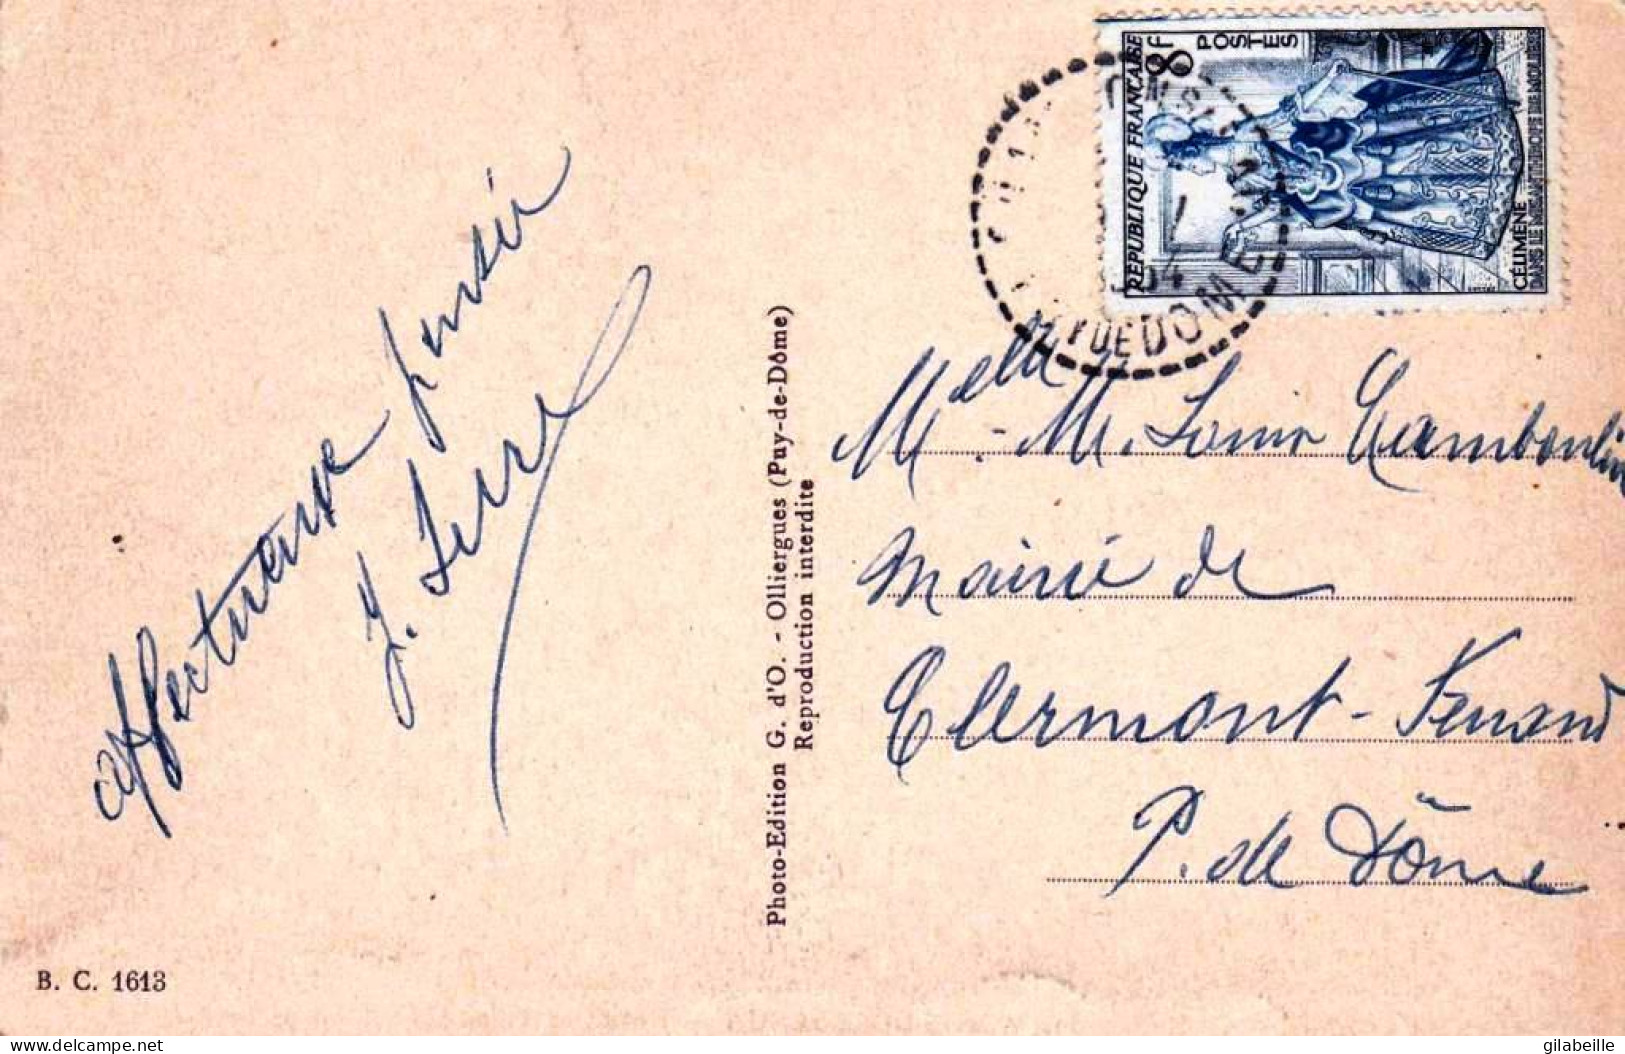 Affectueuse pensée
J. Serre
B. C. 1613
Photo-Edition G. d'O. - Olliergues (Puy-de-Dôme)
Reproduction interdite
RÉPUBLIQUE FRANÇAISE
8f
POSTES
CÉLIMÈNE
DANS LE MISANTHROPE DE MOLIÈRE
PUY DE DOME
Melle M. Louis
Mairie de
Clermont-Ferrand
P. de Dôme
delcampe.net
gilabeille